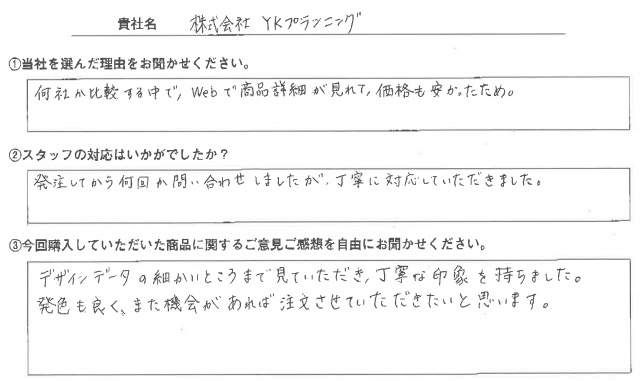 貴社名 株式会社 YKプランニング
①当社を選んだ理由をお聞かせください。
何社か比較する中で、Webで商品詳細が見れて、価格も安かったため。
②スタッフの対応はいかがでしたか？
発注してから何回か問い合わせしましたが、丁寧に対応していただきました。
③今回購入していただいた商品に関するご意見ご感想を自由にお聞かせください。
デザインデータの細かいところまで見ていただき、丁寧な印象を持ちました。
発色も良く、また機会があれば注文させていただきたいと思います。